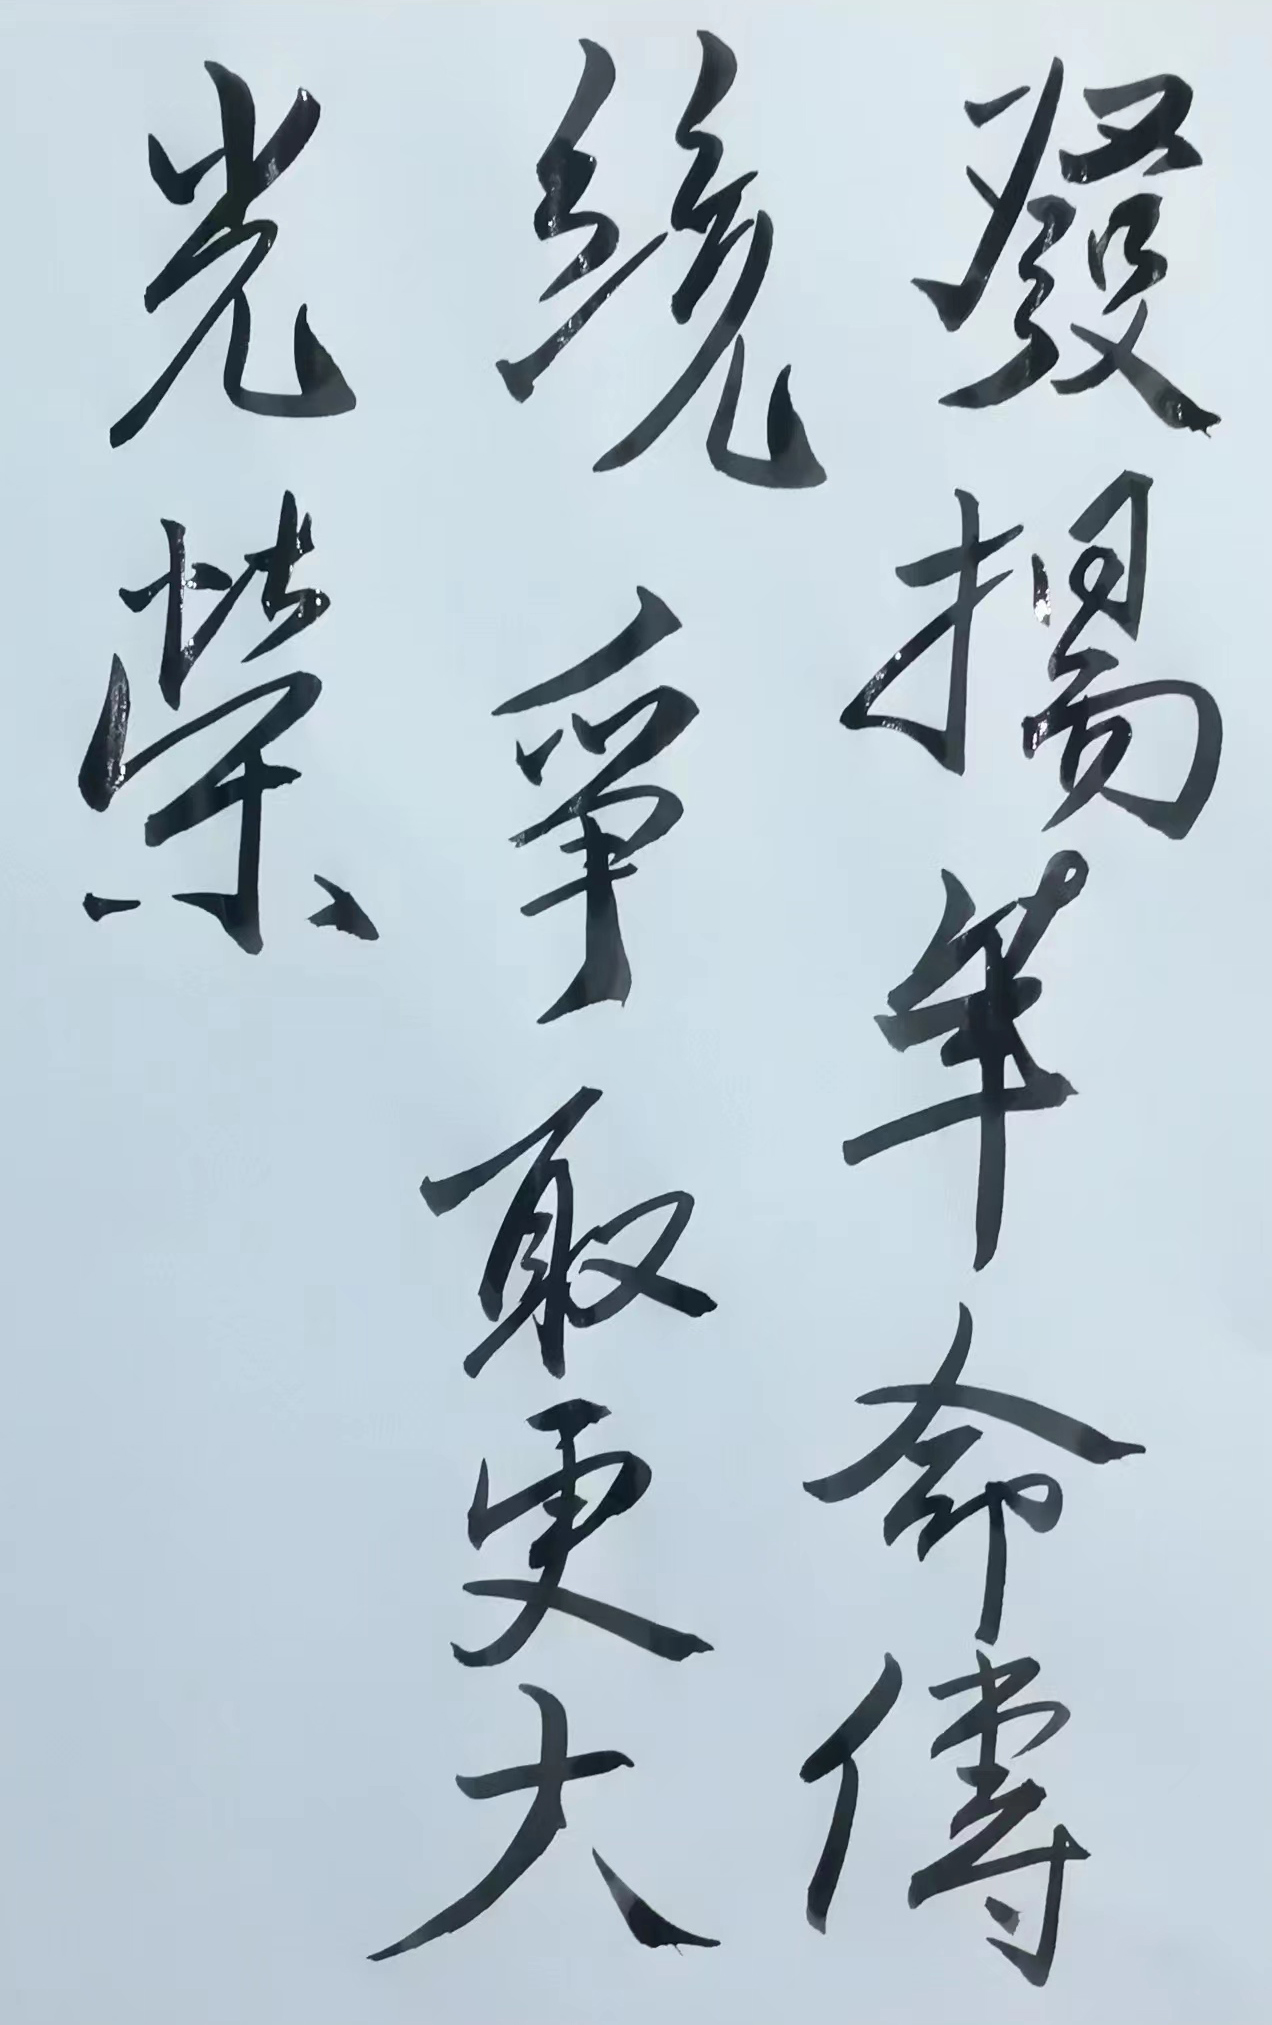 發揚革命傳
統爭取更大
光榮